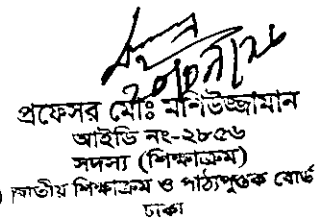 প্রফেসর মোঃ মনিউজ্জামান
আইডি নং-২৮৫৬
সদস্য (শিক্ষাক্রম)
জাতীয় শিক্ষাক্রম ও পাঠ্যপুস্তক বোর্ড
ঢাকা